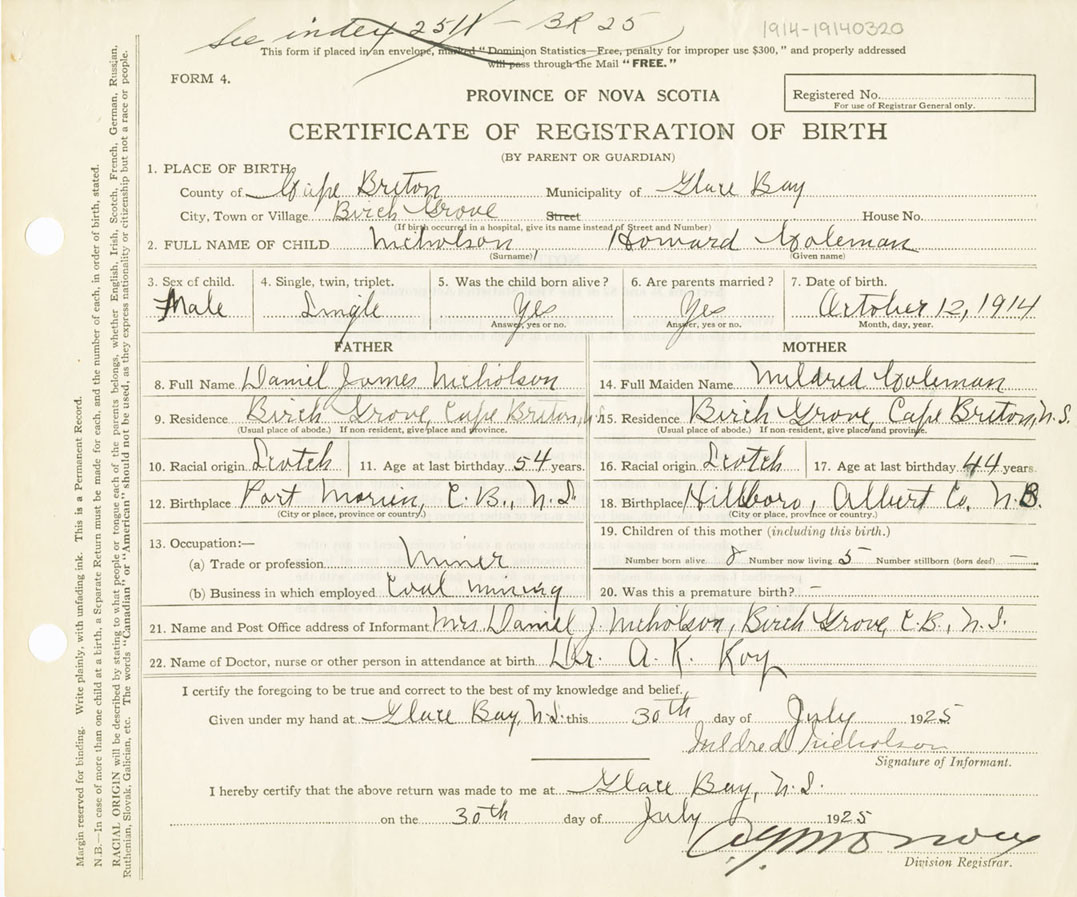 See index 251X – BR 25
1914-19140320
This form if placed in an envelope, marked "Dominion Statistics—Free, penalty for improper use $300," and properly addressed
will pass through the Mail "FREE."
FORM 4.
PROVINCE OF NOVA SCOTIA
Registered No.
For use of Registrar General only.
CERTIFICATE OF REGISTRATION OF BIRTH
(BY PARENT OR GUARDIAN)
1. PLACE OF BIRTH
County of Cape Briton Municipality of Glace Bay
City, Town or Village Birch Grove Street House No.
(If birth occurred in a hospital, give its name instead of Street and Number)
2. FULL NAME OF CHILD Nicholson, Howard Coleman
(Surname) (Given name)
3. Sex of child. 4. Single, twin, triplet. 5. Was the child born alive? 6. Are parents married? 7. Date of birth.
Male Single Yes Yes October 12, 1914
Answer, yes or no. Answer, yes or no. Month, day, year.
FATHER MOTHER
8. Full Name Daniel James Nicholson 14. Full Maiden Name Mildred Coleman
9. Residence Birch Grove, Cape Briton, N.S. 15. Residence Birch Grove, Cape Briton, N.S.
(Usual place of abode.) If non-resident, give place and province. (Usual place of abode.) If non-resident, give place and province.
10. Racial origin Scotch 11. Age at last birthday 54 years. 16. Racial origin Scotch 17. Age at last birthday 44 years.
12. Birthplace Port Morien, C.B., N.S. 18. Birthplace Hillsboro, Albert Co. N.B.
(City or place, province or country.) (City or place, province or country.)
19. Children of this mother (including this birth.)
13. Occupation:—
(a) Trade or profession Miner Number born alive 8 Number now living 5 Number stillborn (born dead) —
(b) Business in which employed Coal mining 20. Was this a premature birth? —
21. Name and Post Office address of Informant Mrs. Daniel J. Nicholson, Birch Grove, C.B., N.S.
22. Name of Doctor, nurse or other person in attendance at birth Dr. A. K. Roy
I certify the foregoing to be true and correct to the best of my knowledge and belief.
Given under my hand at Glace Bay, N.S. this 30th day of July 1925
Mildred Nicholson
Signature of Informant.
I hereby certify that the above return was made to me at Glace Bay, N.S.
on the 30th day of July 1925
Division Registrar.
Margin reserved for binding. Write plainly, with unfading ink. This is a Permanent Record.
N.B.—In case of more than one child at a birth, a Separate Return must be made for each, and the number of each, in order of birth, stated.
RACIAL ORIGIN will be described by stating to what people or tongue each of the parents belongs, whether English, Irish, Scotch, French, German, Russian,
Ruthenian, Slovak, Galician, etc. The words "Canadian" or "American" should not be used, as they express nationality or citizenship but not a race or people.